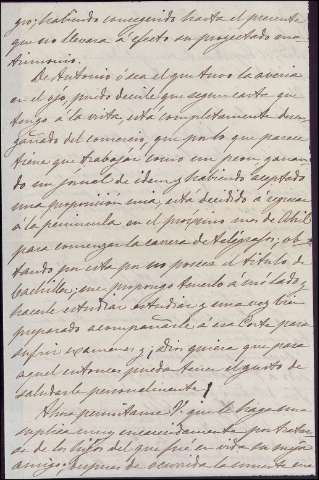 gro; habiendo conseguido hasta el presente
que no llevara á efecto su proyectado ma
trimonio.
De Antonio ó sea el que tuvo la avería
en el ojo, puedo decirle que segun carta que
tengo á la vista, está completamente desen
gañado del comercio, que por lo que parece
tiene que trabajar como un peon ganan
do un jornal de idem y habiendo aceptado
una proposición mia, está decidido á regresar
á la península en el próximo mes de Abril
para comenzar la carrera de telégrafos; op
tando por esta por no poseer el título de
bachiller; me propongo tenerlo á mi lado y
hacerle estudiar y una vez bien
preparado acompañarle á esa Corte para
sufrir examenes y ¡Dios quiera que para
aquel entonces pueda tener el gusto de
saludarle personalmente!
Ahora permitame V. que le haga una
suplica muy encarecidamente por tratar
se de los hijos del que fué en vida su mejor
amigo; despues de ocurrida la muerte